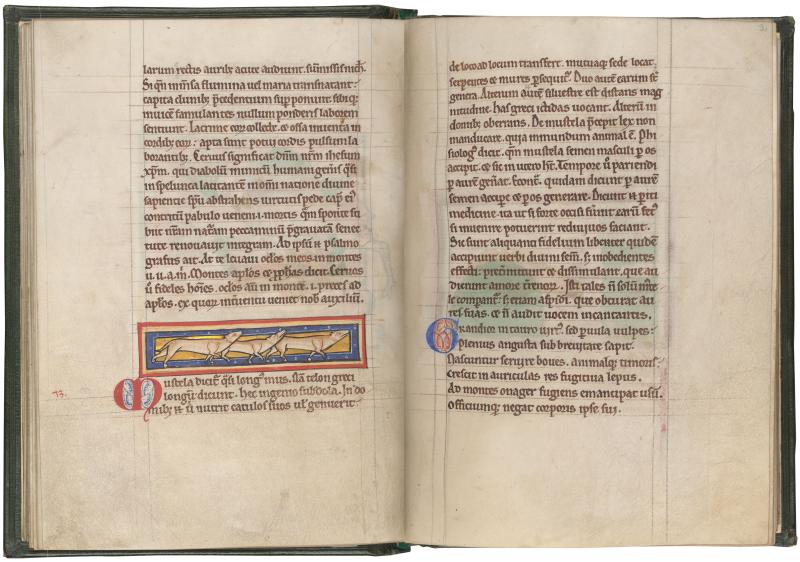 larum rectis aurib; acute audiunt. sumissis nich̄.
Si qn̄ im̄sa flumina uel maria transnatant:
capita clunib; p̄cedentium sup ponunt. sibiq;
inuicē famulantes nullum ponderis laborem
sentiunt. Lacrime eoꝝ collecte. ⁊ ossa inuenta in
cordib; eoꝝ: apta sunt potui cordis pulsum la
borantib;. Ceruus significat dn̄m nr̄m ihesum
xp̄m. qui diabolū inimicū humani gen̄is q̄si
in spelunca latitantē
sapientie sp̄u abstrahens uirtutis pede cap̄ ei'
contritū pabulo ueneni .i. mortis
uniam nat̄am peccaminū p̄grauatā senec
tute renouauit integram. Ad ip̄sū ⁊ psalmo
grafus ait. At te leuaui oc̄los meos in montes
u. u. a. m̄. Montes ap̄los ⁊ p̄phas dicit. Ceruos
ū fideles hoīes. oc̄los
ap̄los. ex quoꝝ inuentu ueniet nob̄ auxiliū.
73.
Mustela dicit̄ q̄si long' mus. nā telon greci
longū dicunt. hec ingenio subdola. In do
mib; ⁊ ū nutrit catulos suos ul' genuerit.
de loco ad locum transfert. mutaq; sede locat.
serpentes ⁊ mures p̄sequit̄. Duo autē earum st̄
genera. Alterum autē siluestre est distans mag
nitudine. has greci ictidas uocant. Alterū in
domib; oberrans. De mustela p̄cepit lex non
manducare. quia inmundum animal ē. Phi
siologꝰ dicit. qm̄ mustela semen masculi p os
accipit. ⁊ sic in utero ht̄. Tempore ū pariendi
p aurē gen̄at. Econt̄. quidam dicunt p aurē
semen accipe ⁊ p os generare. Dicunt̄ ⁊ p̄iti
medicine. ita ut si forte occisi fūint earū fet'
si inuenire potuerint rediuiuos faciant.
Sic sunt aliquanti fidelium libenter quidē
accipiunt uerbi diuini sem̄. s; inobedientes
effecti: p̄termittunt ⁊ dissimulant. que au
dierunt
le companē. s; etiam aspidi. que obturat au
res suas. ⁊ n̄ audit uocem incantantis.
Grandior in tauro uirt'. sed paruula uulpes:
Plenius angusta sub breuitate sapit.
Nascuntur seruire boues. animalq; timoris:
Crescit in auriculas res fugitiua lepus.
Ad montes onager fugiens emancipat usū.
Officiumq; negat corporis ipse sui.